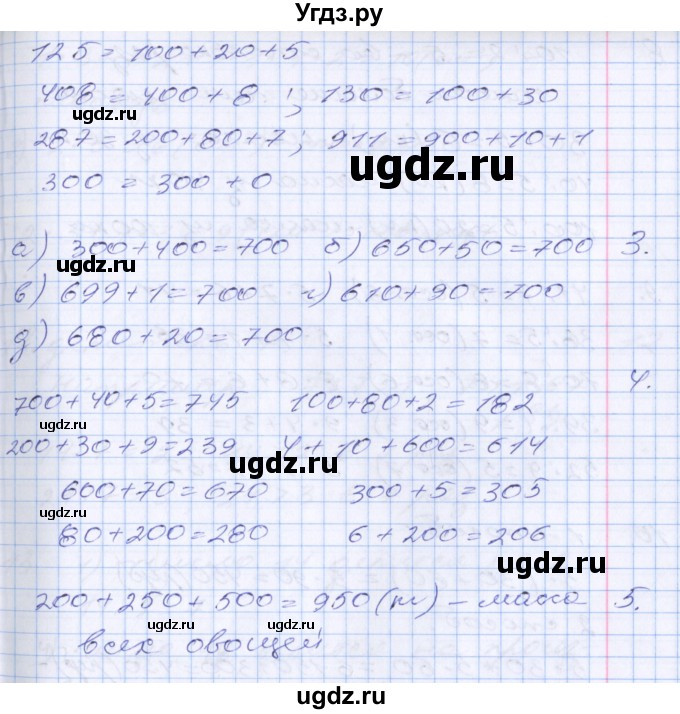 Угдз.ру
125 = 100 + 20 + 5
408 = 400 + 8 ; 130 = 100 + 30
ugdz.ru
287 = 200 + 80 + 7 ; 911 = 900 + 10 + 1
ugdz.ru
300 = 300 + 0
а) 300 + 400 = 700 б) 650 + 50 = 700 3.
ugdz.ru
в) 699 + 1 = 700 г) 610 + 90 = 700
д) 680 + 20 = 700 .
4.
700 + 40 + 5 = 745 100 + 80 + 2 = 182
ugdz.ru
200 + 30 + 9 = 239 4 + 10 + 600 = 614
ugdz.ru
600 + 70 = 670 300 + 5 = 305
ugdz.ru
80 + 200 = 280 6 + 200 = 206
ugdz.ru
200 + 250 + 500 = 950 (т) – масса 5.
ugdz.ru
всех овощей
ugdz.ru